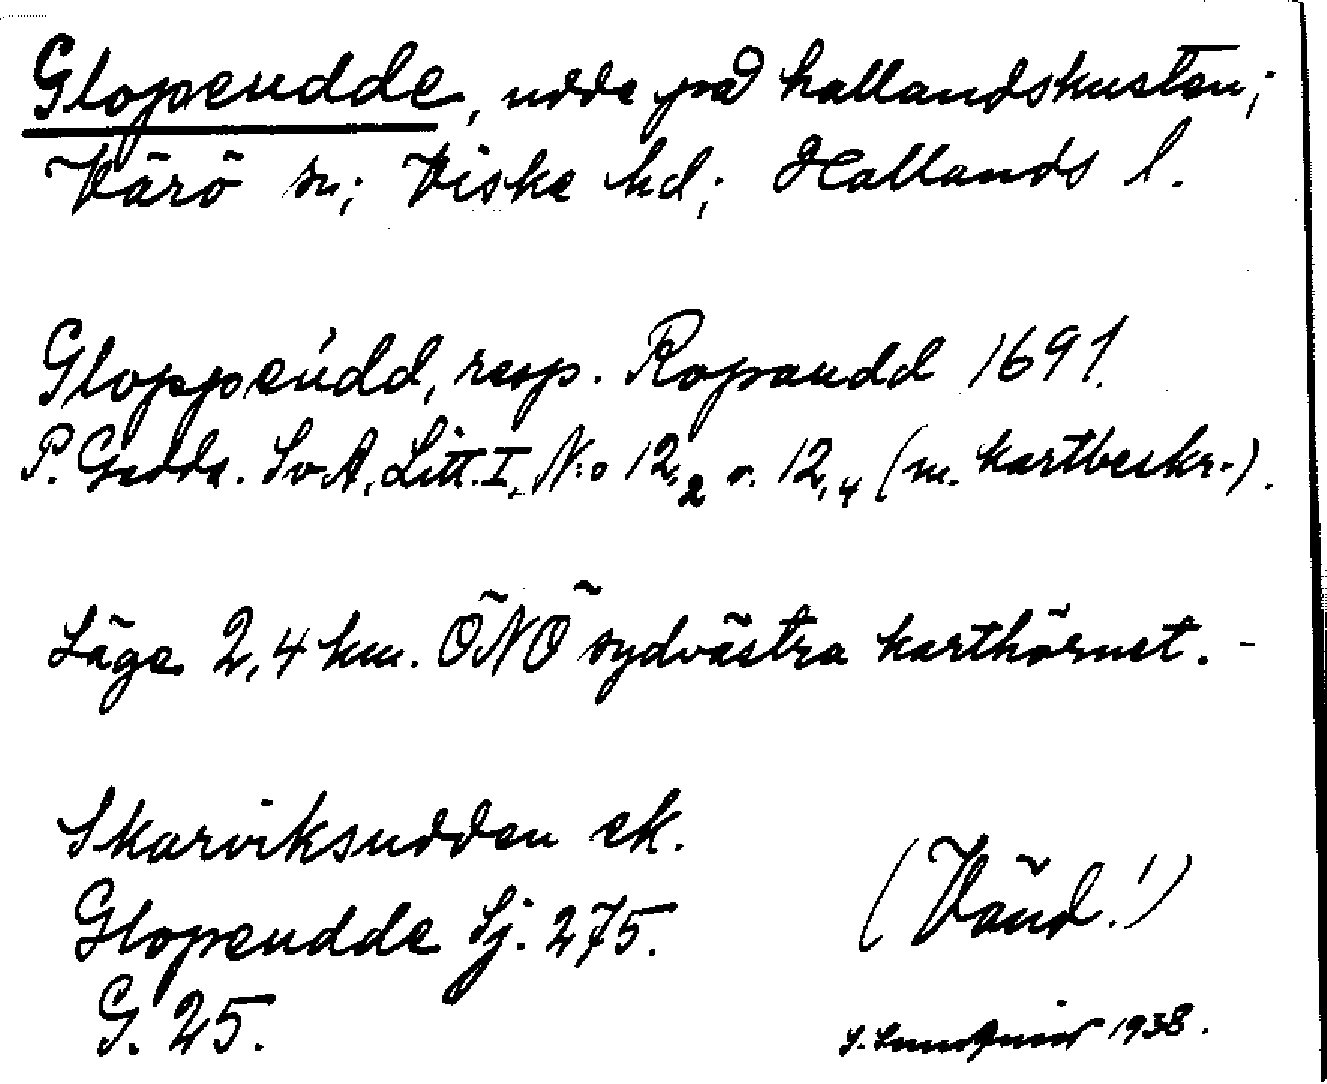 Glopeudde, udde på hallandskusten;
Värö sn; Viske hd; Hallands l.
Gloppeúdd, resp. Ropaudd 1691.
P. Gedda. SvA, Litt. I, N:o 12,2 o. 12,4 (m. kartbeskr.).
Läge 2,4 km. ÖNÖ sydvästra karthörnet. -
Skarviksudden ek.
Glopeudde Sj. 275.
G. 25.
(Vänd!)
S. 1938.